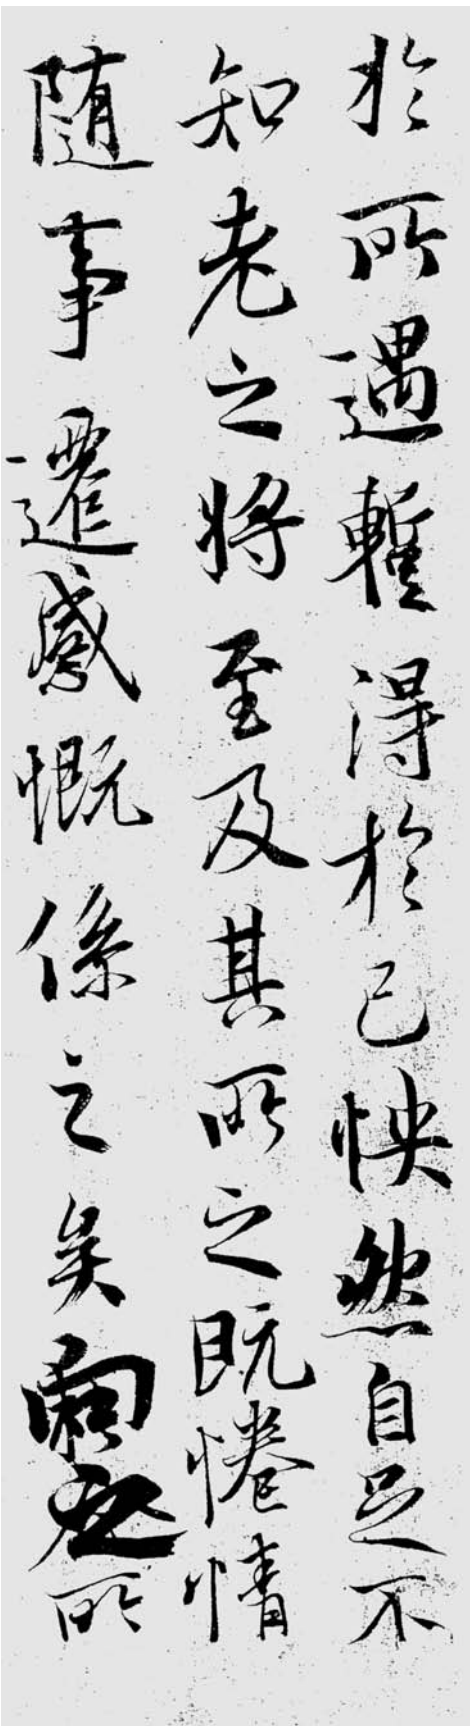 於所遇蹔得於己怏然自足不
知老之將至及其所之既惓情
随事遷感慨係之矣向之所